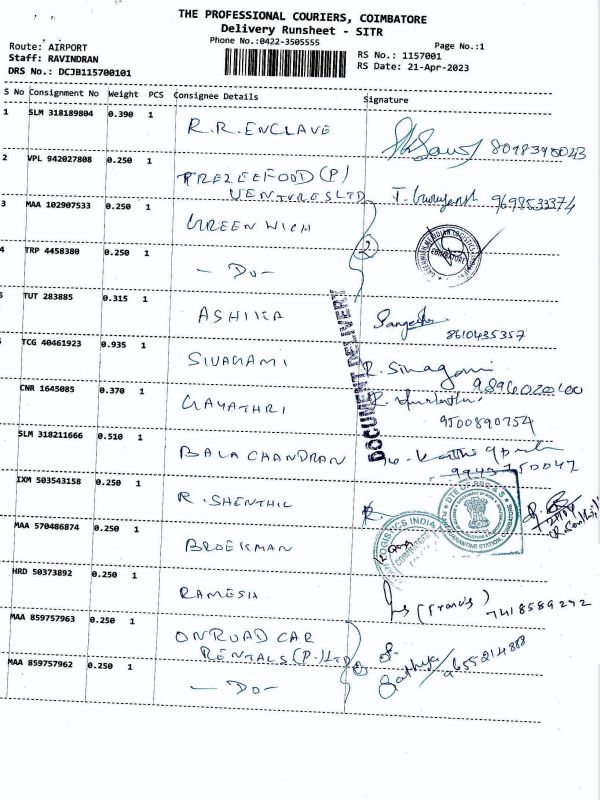 THE PROFESSIONAL COURIERS, COIMBATORE
Delivery Runsheet - SITR
Phone No.:0422-3505555
Page No.:1
Route: AIRPORT
RS No.: 1157001
Staff: RAVINDRAN
RS Date: 21-Apr-2023
DRS No.: DCJB115700101
S No Consignment No Weight PCS Consignee Details Signature
1 SLM 318189804 0.390 1 R.R. ENCLAVE
2 VPL 942027808 0.250 1 FREZEEFOOD (P)
VENTURES LTD
9698533374
3 MAA 102907533 0.250 1 GREEN WICH
2
4 TRP 4458380 0.250 1 - DO -
COIMBATORE
5 TUT 283885 0.315 1 ASHIKA
8610435357
DOCUMENT DELIVERY
TCG 40461923 0.935 1 SIVAGAMI R. Sivagami
CNR 1645085 0.370 1 GAYATHRI
9500890754
SLM 318211666 0.510 1 BALA CHANDRAN
IXM 503543158 0.250 1 R. SHENTHIL R.
LOGISTICS INDIA
MAA 570486874 0.250 1 BROEKMAN
HRD 50373892 0.250 1 RAMESH (Francis)
7418589272
MAA 859757963 0.250 1 ONROAD CAR
RENTALS (P.) LTD
2
S.
Sathya / 9655214888
MAA 859757962 0.250 1 - DO -